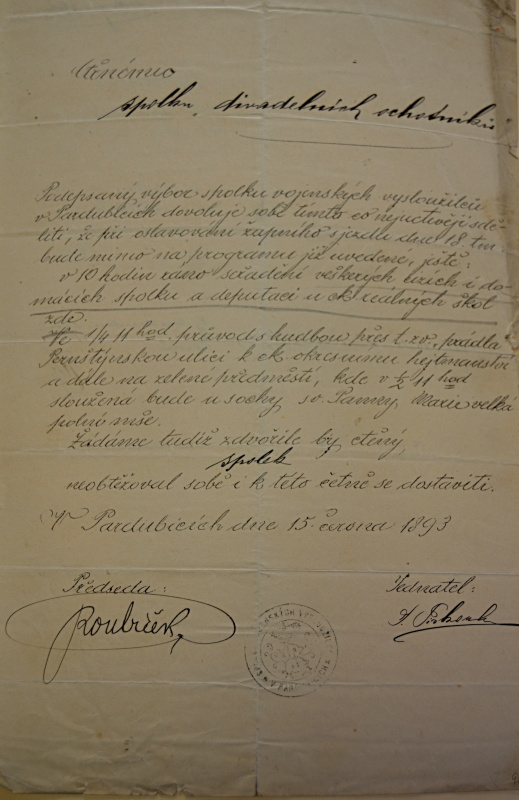 Ctěnému
spolku divadelních ochotníků
Podepsaný výbor spolku vojenských vysloužilců
v Pardubicích dovoluje sobě tímto co nejuctivěji sdě-
liti, že při oslavování župního sjezdu dne 18. t.m.
bude mimo na programu již uvedené, ještě:
v 10 hodin ráno seřadění veškerých cizích i do-
mácích spolku a deputací u ck reálných škol
zde.
1/4 11 hod. průvod s hudbou přes t. zv. „prádla"
Pernštínskou ulicí k ck okresnímu hejtmanství
a dále na zelení předměstí, kde v 1/2 11 hod
sloužena bude u sochy sv. Panny Marie velká
polní mše.
Žádáme tudíž zdvořile by ctěný
spolek
neobtěžoval sobě i k této četně se dostaviti.
V Pardubicích dne 15. června 1893
Předseda: Jednatel:
Roubíček